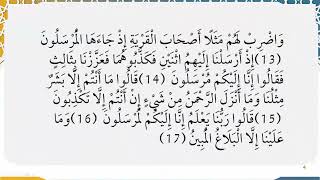 وَاضْرِبْ لَهُمْ مَثَلًا أَصْحَابَ الْقَرْيَةِ إِذْ جَاءَهَا الْمُرْسَلُونَ
(13) إِذْ أَرْسَلْنَا إِلَيْهِمُ اثْنَيْنِ فَكَذَّبُوهُمَا فَعَزَّزْنَا بِثَالِثٍ
فَقَالُوا إِنَّا إِلَيْكُمْ مُرْسَلُونَ (14) قَالُوا مَا أَنْتُمْ إِلَّا بَشَرٌ
مِثْلُنَا وَمَا أَنْزَلَ الرَّحْمَنُ مِنْ شَيْءٍ إِنْ أَنْتُمْ إِلَّا تَكْذِبُونَ
(15) قَالُوا رَبُّنَا يَعْلَمُ إِنَّا إِلَيْكُمْ لَمُرْسَلُونَ (16) وَمَا
عَلَيْنَا إِلَّا الْبَلَاغُ الْمُبِينُ (17)